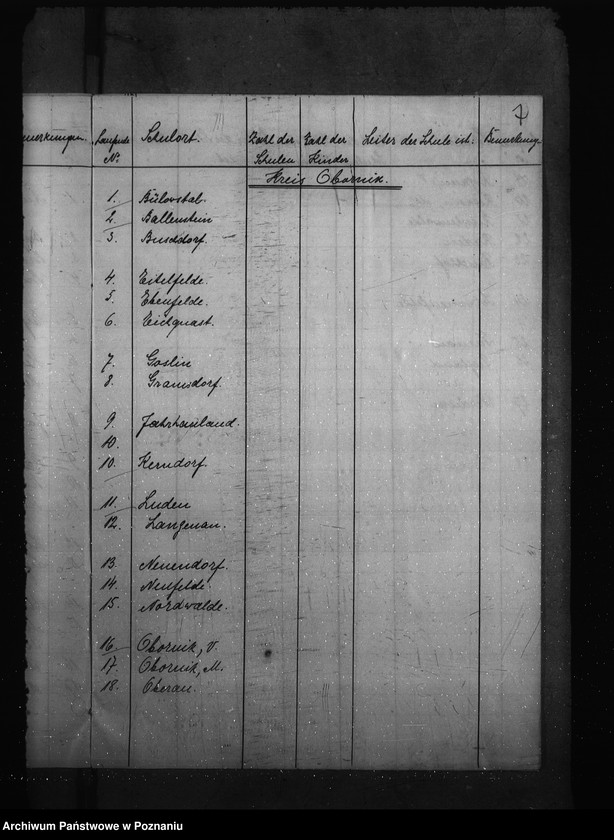 7
merkungen. Laufende Schulort. Zahl der Zahl der Leiter der Schule ist. Bemerkunge
No. Schulen Kinder
Kreis Obornik.
1. Bülowstal.
2. Ballenstein
3. Buschdorf.
4. Eitelfelde.
5. Ebenfelde.
6. Eichquast.
7. Goslin
8. Gramsdorf.
9. Jahrhausland.
10.
10. Kerndorf.
11. Luden
12. Langenau.
13. Neuendorf.
14. Neufelde.
15. Nordwalde.
16. Obornik, V.
17. Obornik, M.
18. Oberau.
Archiwum Państwowe w Poznaniu